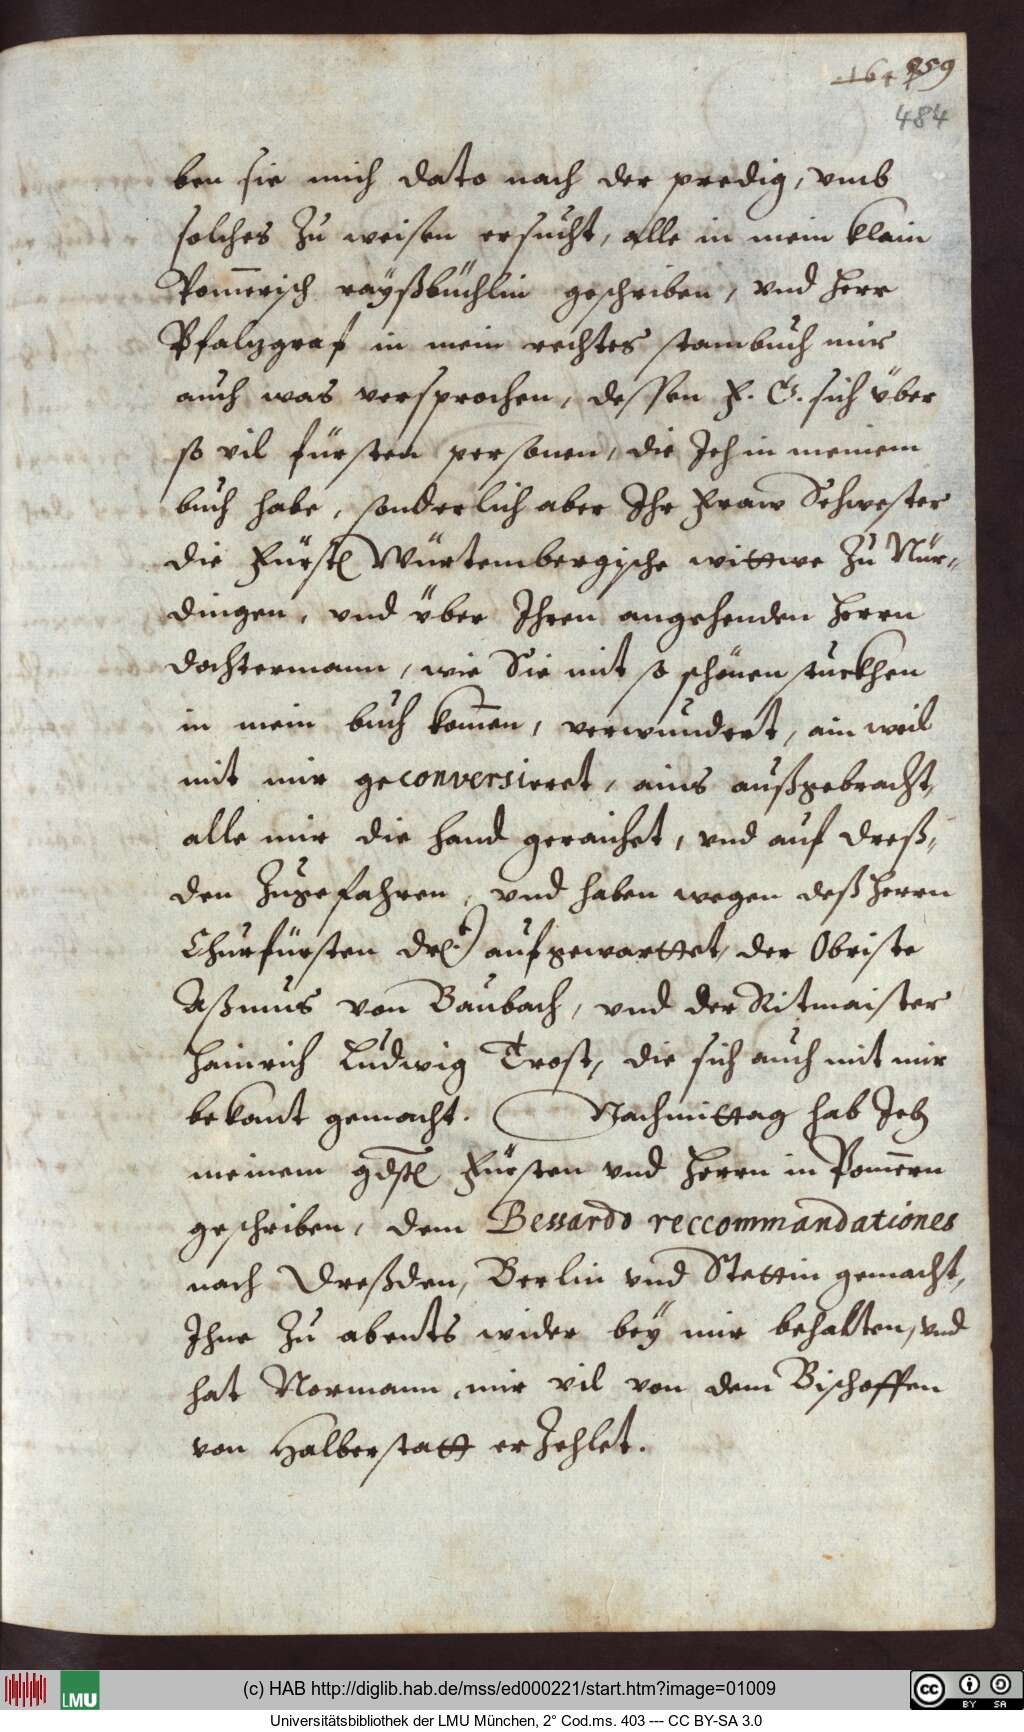 859
484
ben sie mich dato nach der predig, vmb
solches Zu weisen ersucht, alle in mein klain
Pom̄erisch rayßbüchlin geschriben, vnd Herr
Pfalzgraf in mein rechtes stambuch mir
auch was versprochen, dessen F. G. sich über
so vil fürsten personen, die Ich in meinem
buch habe, sonderlich aber Ihr Fraw Schwester
die Fürstl Würtembergische wittwe Zu Nür-
dingen, vnd über Ihren angehenden Herrn
dochtermann, wie Sie mit so schönen stuckhen
in mein buch kom̄en, verwundert, ain weil
mit mir geconversieret, ains außgebracht,
alle mir die hand geraichet, vnd auf Dreß-
den Zugefahren, vnd haben wegen deß Herrn
Churfürsten aufgewarttet, der Obriste
Aßmus von Baubach, vnd der Ritmaister
Hainrich Ludwig Trost, die sich auch mit mir
bekant gemacht. Nachmittag hab Ich
meinem gdstl Fürsten vnd Herrn in Pom̄ern
geschriben, dem Bessardo reccommandationes
nach Dreßden, Berlin vnd Stettin gemacht,
Ihne Zu abents wider bey mir behalten, vnd
hat Normann mir vil von dem Bischoffen
von Halberstatt erZehlet.
LMU
(c) HAB http://diglib.hab.de/mss/ed000221/start.htm?image=01009
cc BY SA
Universitätsbibliothek der LMU München, 2° Cod.ms. 403 --- CC BY-SA 3.0